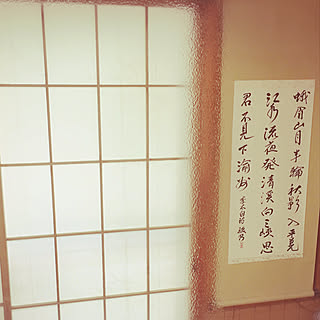 蛾眉山月半輪秋影入平羌
江水流夜發清溪向三峡思
君不見下渝州 李太白詩